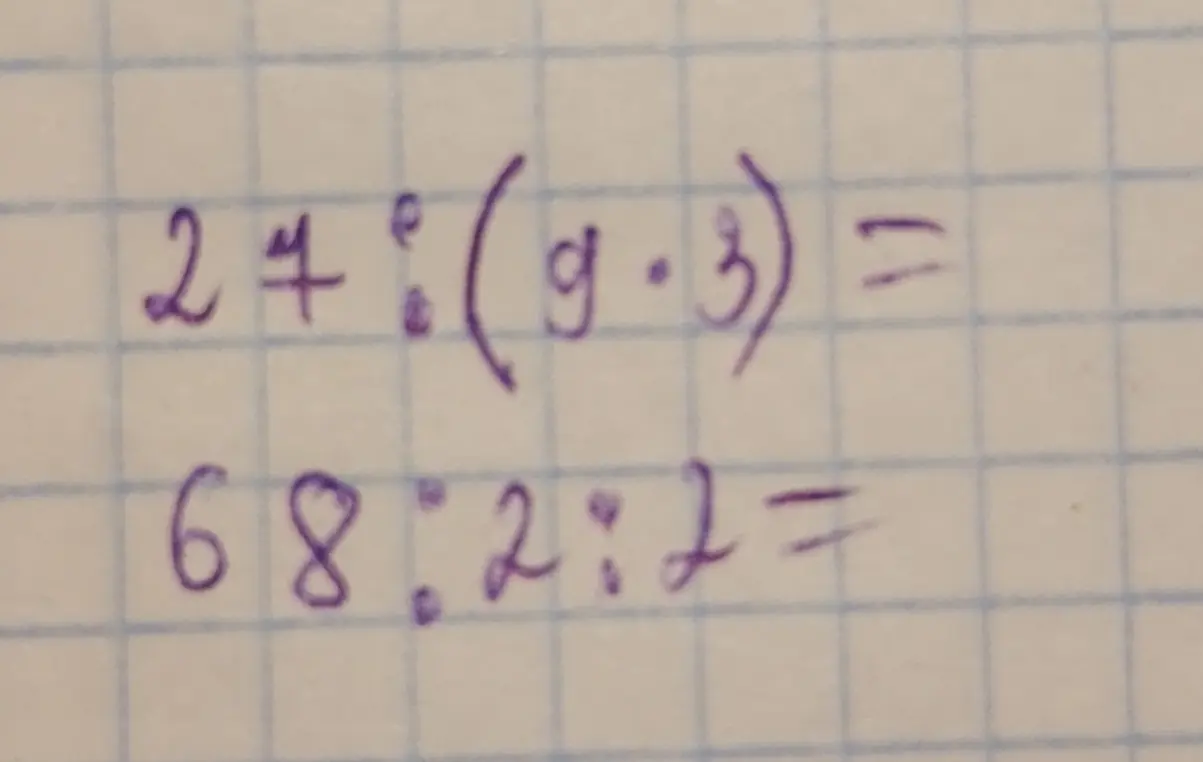 27:(9·3)=
68:2:2=